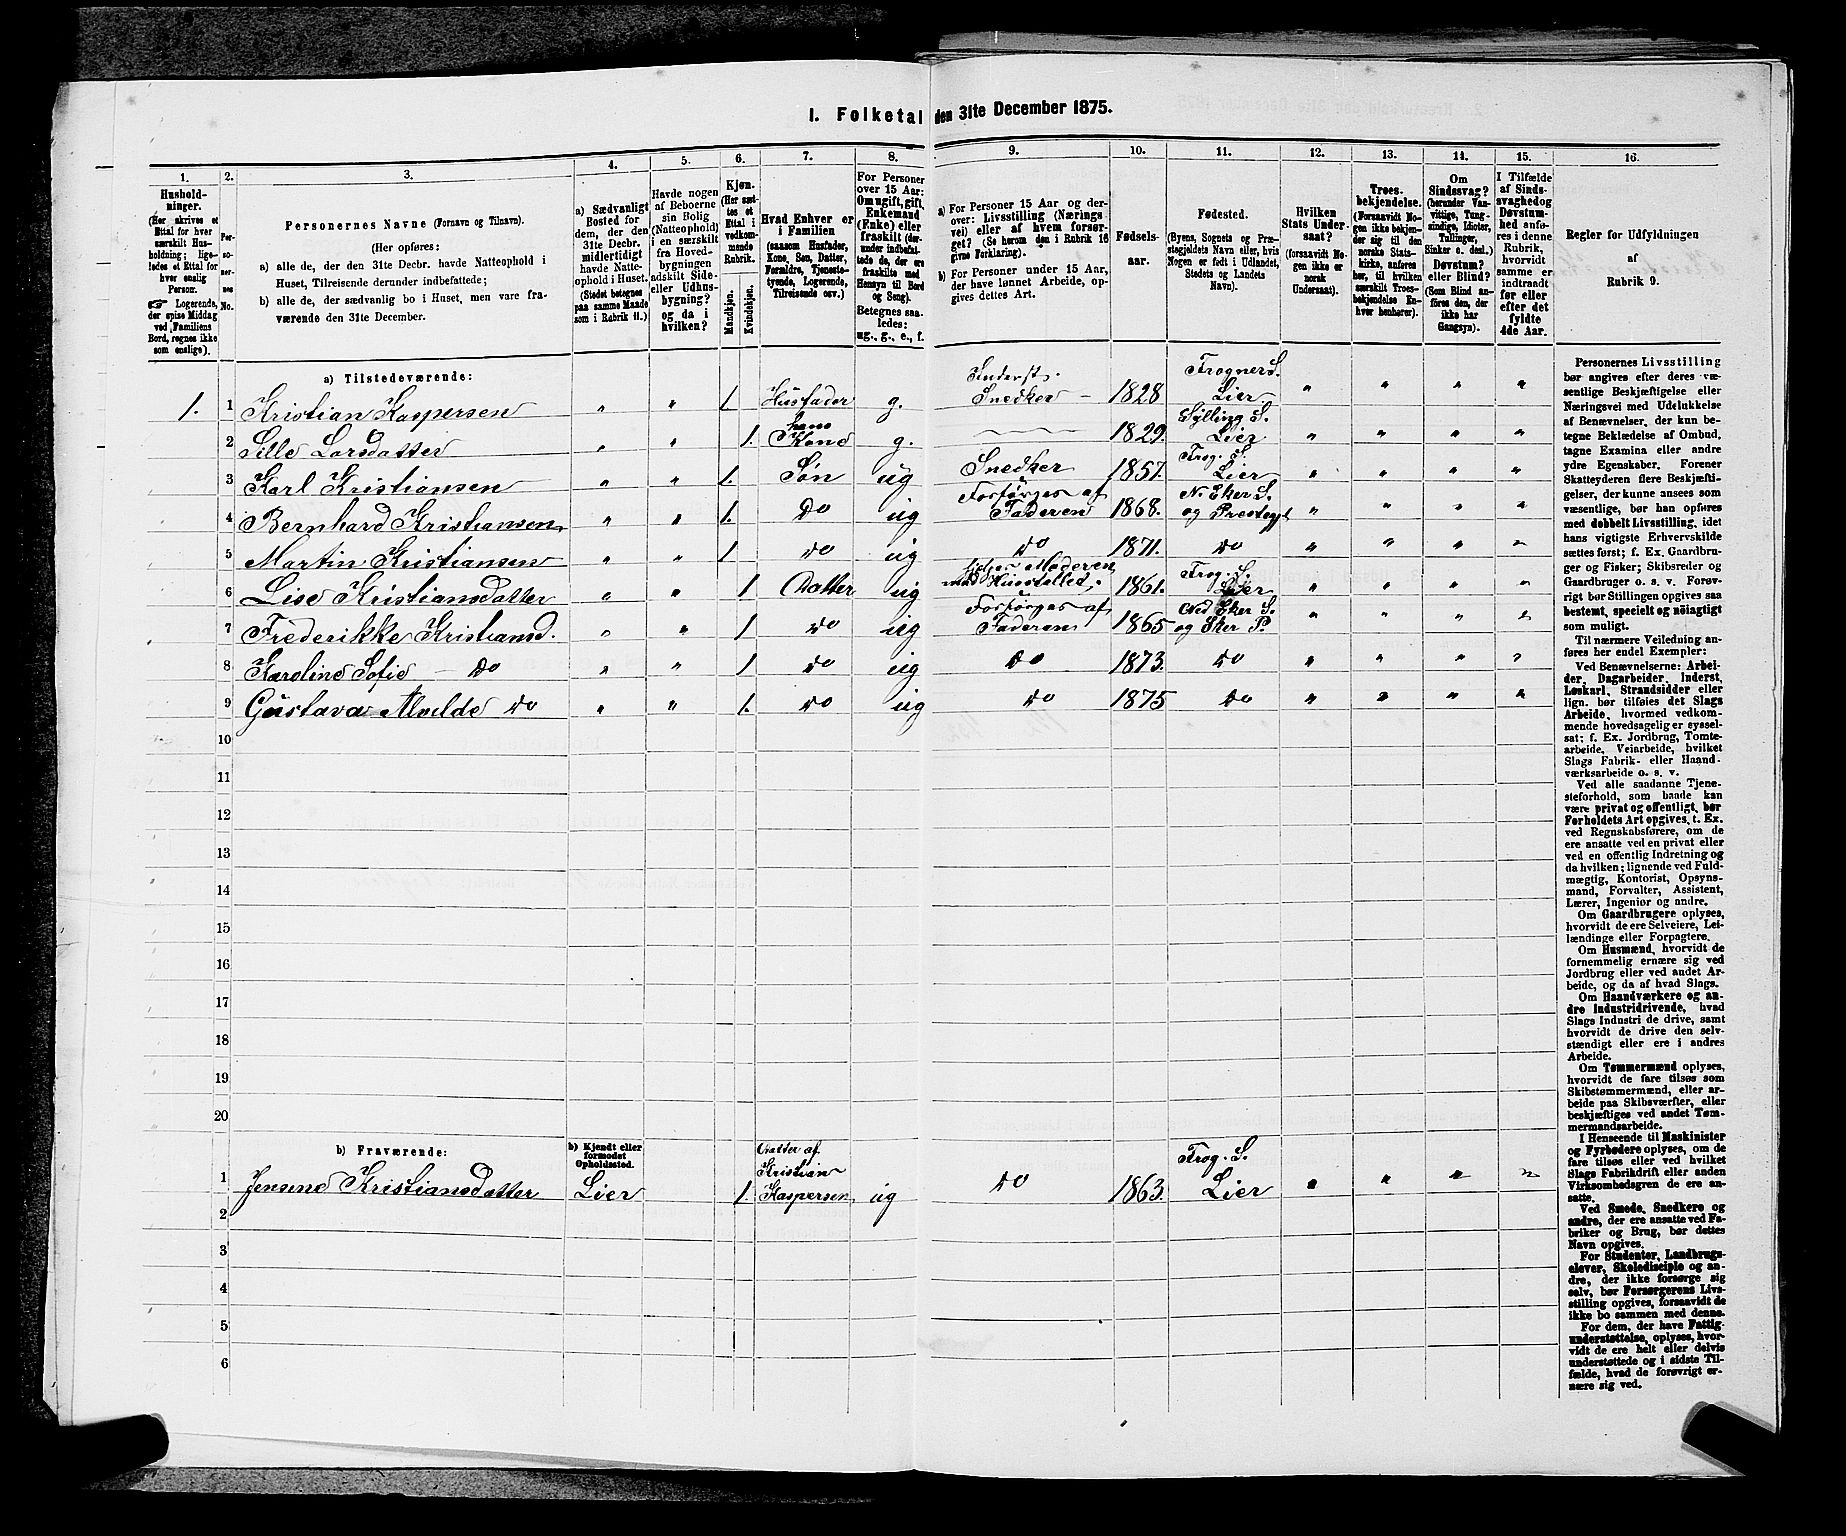 I. Folketal den 31te December 1875.
1. 2. 3. 4. 5. 6. 7. 8. 9. 10. 11. 12. 13. 14. 15. 16.
Hushold-
ninger.
(Her skrives et
Ettal for hver
særskilt Hus-
holdning; lige-
ledes et Ettal for
hver enslig
Person.
☞ Logerende,
der spise Middag
ved Familiens
Bord, regnes ikke
som enslige).
Per-
so-
ner-
nes
No.
Personernes Navne (Fornavn og Tilnavn).
(Her opføres:
a) alle de, der den 31te Decbr. havde Natteophold i
Huset, Tilreisende derunder indbefattede;
b) alle de, der sædvanlig bo i Huset, men vare fra-
værende den 31te December.
a) Sædvanligt
Bosted for
dem, der den
31te Decbr.
midlertidigt
havde Natte-
ophold i Huset.
(Stedet betegnes
paa samme Maade
som i Rubrik 11.)
Havde nogen
af Beboerne
sin Bolig
(Natteophold)
i en særskilt
fra Hoved-
bygningen
adskilt Side-
eller Udhus-
bygning?
og da i
hvilken?
Kjøn.
(Her sæt-
tes et
Ettal i
vedkom-
mende
Rubrik.
Mandkjøn.
Kvindekjøn.
Hvad Enhver er
i Familien
(saasom Husfader,
Kone, Søn, Datter,
Forældre, Tjeneste-
tyende, Logerende,
Tilreisende osv.)
For Personer
over 15 Aar:
Om ugift, gift,
Enkemand
(Enke) eller
fraskilt (der-
under indbefat-
tede de, der ere
fraskilte med
Hensyn til Bord
og Seng).
Betegnes saa-
ledes:
ug., g., e., f.
a) For Personer 15 Aar og der-
over: Livsstilling (Nærings-
vei) eller af hvem forsør-
get? (Se herom den i Rubrik 16
givne Forklaring).
b) For Personer under 15 Aar,
der have lønnet Arbeide, op-
gives dettes Art.
Fødsels-
aar.
Fødested.
(Byens, Sognets og Præ-
stegjeldets Navn eller, hvis
Nogen er født i Udlandet,
Stedets og Landets
Navn).
Hvilken
Stats Under-
saat?
(forsaavidt No-
gen ikke er
norsk
Undersaat).
Troes-
bekjendelse.
(Forsaavidt No-
gen ikke bekjen-
der sig til den
norske Stats-
kirke, anføres
her, til hvilken
særskilt Troes-
bekjendelse En-
hver henhører).
Om
Sindssvag?
(herunder Van-
vittige, Tung-
sindige, Idioter,
Tullinger,
Sinker o. desl.)
Døvstum?
eller Blind?
(Som Blind an-
føres den, der
ikke har
Gangsyn).
I Tilfælde
af Sinds-
svaghed og
Døvstum-
hed anfø-
res i denne
Rubrik,
hvorvidt
samme er
indtraadt
før eller
efter det
fyldte
4de Aar.
Regler for Udfyldningen
af
Rubrik 9.
a) Tilstedeværende:
1. 1 Kristian Kaspersen " " 1. Husfader g. Inderst. Snedker – 1828 Frogner S. Lier " " " "
2 Sille Larsdatter " " 1. hans Kone g. 1829. Sylling S. Lier " " " "
3 Karl Kristiansen " " 1. Søn ug Snedker 1857. Frog. S. Lier " " " "
4 Bernhard Kristiansen " " 1. Do ug Forsørges af Faderen 1868. N. Eker S. og Prestegjl " " " "
5 Martin Kristiansen " " 1. Do ug Do 1871. Do " " " "
6 Lise Kristiansdatter " " 1 Datter ug Moderen med Husstellet. 1861. Frog. S. Lier " " " "
7 Frederikke Kristiansd. " " 1 Do ug Forsørges af Faderen 1865 Ned Eker S. og Eker P. " " " "
8 Karoline Sofie – Do " " 1 Do ug Do 1873. Do " " " "
9 Gustava Alvilde Do " " 1. Do ug Do 1875 Do " " " "
10
11
12
13
14
15
16
17
18
19
20
b) Fraværende:
b) Kjendt eller
formodet
Opholdssted.
1 Jensine Kristiansdatter Lier 1. Datter af Kristian Kaspersen ug Do 1863. Frog. S. Lier " " " "
2
3
4
5
6
Personernes Livsstilling
bør angives efter deres væ-
sentlige Beskjæftigelse eller
Næringsvei med Udelukkelse
af Benævnelser, der kun be-
tegne Beklædelse af Ombud,
tagne Examina eller andre
ydre Egenskaber. Forener
Skatteyderen flere Beskjæfti-
gelser, der kunne ansees som
væsentlige, bør han opføres
med dobbelt Livsstilling, idet
hans vigtigste Erhvervskilde
sættes først; f. Ex. Gaardbru-
ger og Fisker; Skibsreder og
Gaardbruger o. s. v. Forøv-
rigt bør Stillingen opgives saa
bestemt, specielt og nøiagtigt
som muligt.
Til nærmere Veiledning an-
føres her endel Exempler:
Ved Benævnelserne: Arbei-
der, Dagarbeider, Inderst,
Løskarl, Strandsidder eller
lign. bør tilføies det Slags
Arbeide, hvormed vedkom-
mende hovedsagelig er syssel-
sat; f. Ex. Jordbrug, Tomte-
arbeide, Veiarbeide, hvilket
Slags Fabrik- eller Haand-
værksarbeide o. s. v.
Ved alle saadanne Tjene-
steforhold, som baade kan
være privat og offentligt, bør
Forholdets Art opgives, t. Ex.
ved Regnskabsførere, om de
ere ansatte ved en privat eller
ved en offentlig Indretning og
da hvilken; lignende ved Fuld-
mægtig, Kontorist, Opsyns-
mand, Forvalter, Assistent,
Lærer, Ingeniør og andre.
Om Gaardbrugere oplyses,
hvorvidt de ere Selveiere, Lei-
lændinge eller Forpagtere.
Om Husmænd, hvorvidt de
fornemmelig ernære sig ved
Jordbrug eller ved andet Ar-
beide, og da af hvad Slags.
Om Haandværkere og an-
dre Industridrivende, hvad
Slags Industri de drive, samt
hvorvidt de drive den selv-
stændigt eller ere i andres
Arbeide.
Om Tømmermænd oplyses,
hvorvidt de fare tilsøs som
Skibstømmermænd, eller ar-
beide paa Skibsværfter, eller
beskjæftiges ved andet Tøm-
mermandsarbeide.
I Henseende til Maskinister
og Fyrbødere oplyses, om de
fare tilsøs eller ved hvilket
Slags Fabrikdrift eller anden
Virksomhedsgren de ere an-
satte.
Ved Smede, Snedkere og
andre, der ere ansatte ved Fa-
briker og Brug, bør dettes
Navn opgives.
For Studenter, Landbrugs-
elever, Skoledisciple og an-
dre, der ikke forsørge sig
selv, bør Forsørgerens Livs-
stilling opgives, forsaavidt de
ikke bo sammen med denne.
For dem, der have Fattig-
understøttelse, oplyses, hvor-
vidt de ere helt eller delvis
understøttede og i sidste Til-
fælde, hvad de forøvrigt er-
nære sig ved.